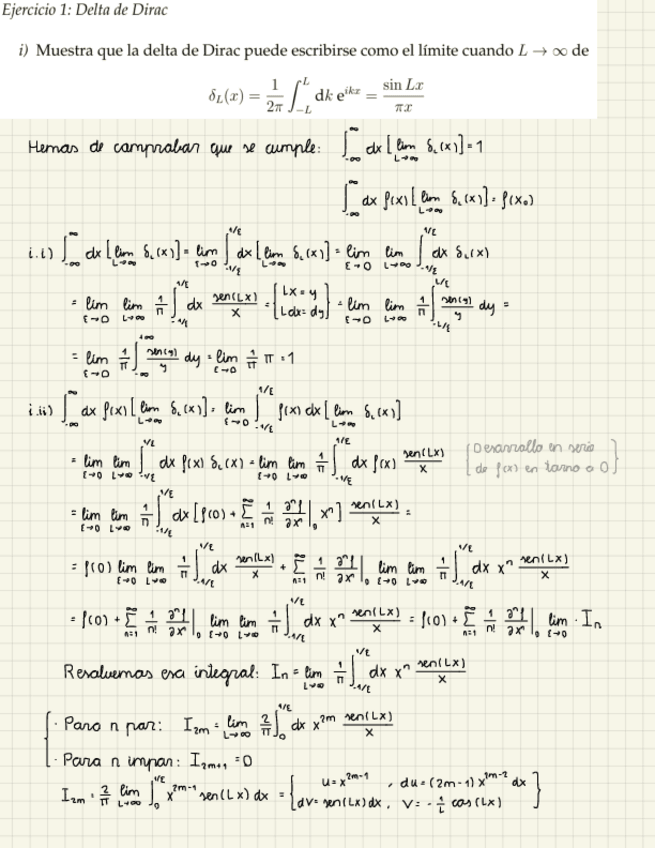 Ejercicio 1: Delta de Dirac
i) Muestra que la delta de Dirac puede escribirse como el límite cuando L → ∞ de
δ_L(x) = 1/2π ∫_{-L}^{L} dk e^{ikx} = sin Lx / πx
Hemos de comprobar que se cumple: ∫_{-∞}^{∞} dx [lim_{L→∞} δ_L(x)] = 1
∫_{-∞}^{∞} dx f(x) [lim_{L→∞} δ_L(x)] = f(x₀)
i.i) ∫_{-∞}^{∞} dx [lim_{L→∞} δ_L(x)] = lim_{ε→0} ∫_{-1/ε}^{1/ε} dx [lim_{L→∞} δ_L(x)] = lim_{ε→0} lim_{L→∞} ∫_{-1/ε}^{1/ε} dx δ_L(x)
= lim_{ε→0} lim_{L→∞} 1/π ∫_{-1/ε}^{1/ε} dx sen(Lx)/x = {Lx = y, Ldx = dy} = lim_{ε→0} lim_{L→∞} 1/π ∫_{-L/ε}^{L/ε} sen(y)/y dy =
= lim_{ε→0} 1/π ∫_{-∞}^{+∞} sen(y)/y dy = lim_{ε→0} 1/π π = 1
i.ii) ∫_{-∞}^{∞} dx f(x) [lim_{L→∞} δ_L(x)] = lim_{ε→0} ∫_{-1/ε}^{1/ε} f(x) dx [lim_{L→∞} δ_L(x)]
= lim_{ε→0} lim_{L→∞} ∫_{-1/ε}^{1/ε} dx f(x) δ_L(x) = lim_{ε→0} lim_{L→∞} 1/π ∫_{-1/ε}^{1/ε} dx f(x) sen(Lx)/x {Desarrollo en serie
de f(x) en torno a 0}
= lim_{ε→0} lim_{L→∞} 1/π ∫_{-1/ε}^{1/ε} dx [f(0) + Σ_{n=1}^{∞} 1/n! ∂ⁿf/∂xⁿ|₀ xⁿ] sen(Lx)/x =
= f(0) lim_{ε→0} lim_{L→∞} 1/π ∫_{-1/ε}^{1/ε} dx sen(Lx)/x + Σ_{n=1}^{∞} 1/n! ∂ⁿf/∂xⁿ|₀ lim_{ε→0} lim_{L→∞} 1/π ∫_{-1/ε}^{1/ε} dx xⁿ sen(Lx)/x
= f(0) + Σ_{n=1}^{∞} 1/n! ∂ⁿf/∂xⁿ|₀ lim_{ε→0} lim_{L→∞} 1/π ∫_{-1/ε}^{1/ε} dx xⁿ sen(Lx)/x = f(0) + Σ_{n=1}^{∞} 1/n! ∂ⁿf/∂xⁿ|₀ lim_{ε→0} · I_n
Resolvemos esa integral: I_n = lim_{L→∞} 1/π ∫_{-1/ε}^{1/ε} dx xⁿ sen(Lx)/x
· Para n par: I_{2m} = lim_{L→∞} 2/π ∫_0^{1/ε} dx x^{2m} sen(Lx)/x
· Para n impar: I_{2m+1} = 0
I_{2m} = 2/π lim_{L→∞} ∫_0^{1/ε} x^{2m-1} sen(Lx) dx = {u = x^{2m-1}, du = (2m-1) x^{2m-2} dx
dv = sen(Lx) dx, v = -1/L cos(Lx)}